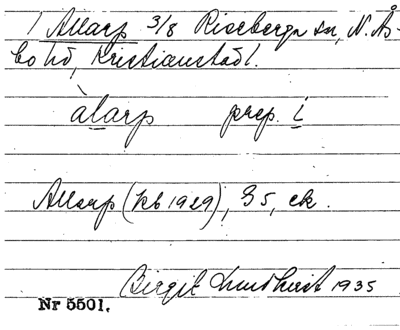 1 Allarp 3/8 Riseberga sn, N. Ås-
bo hd, Kristianstads l.
àlarp prep. i
Allarp (kb 1929), G5, ek.
Birgit Lundkvist 1935
Nr 5501.